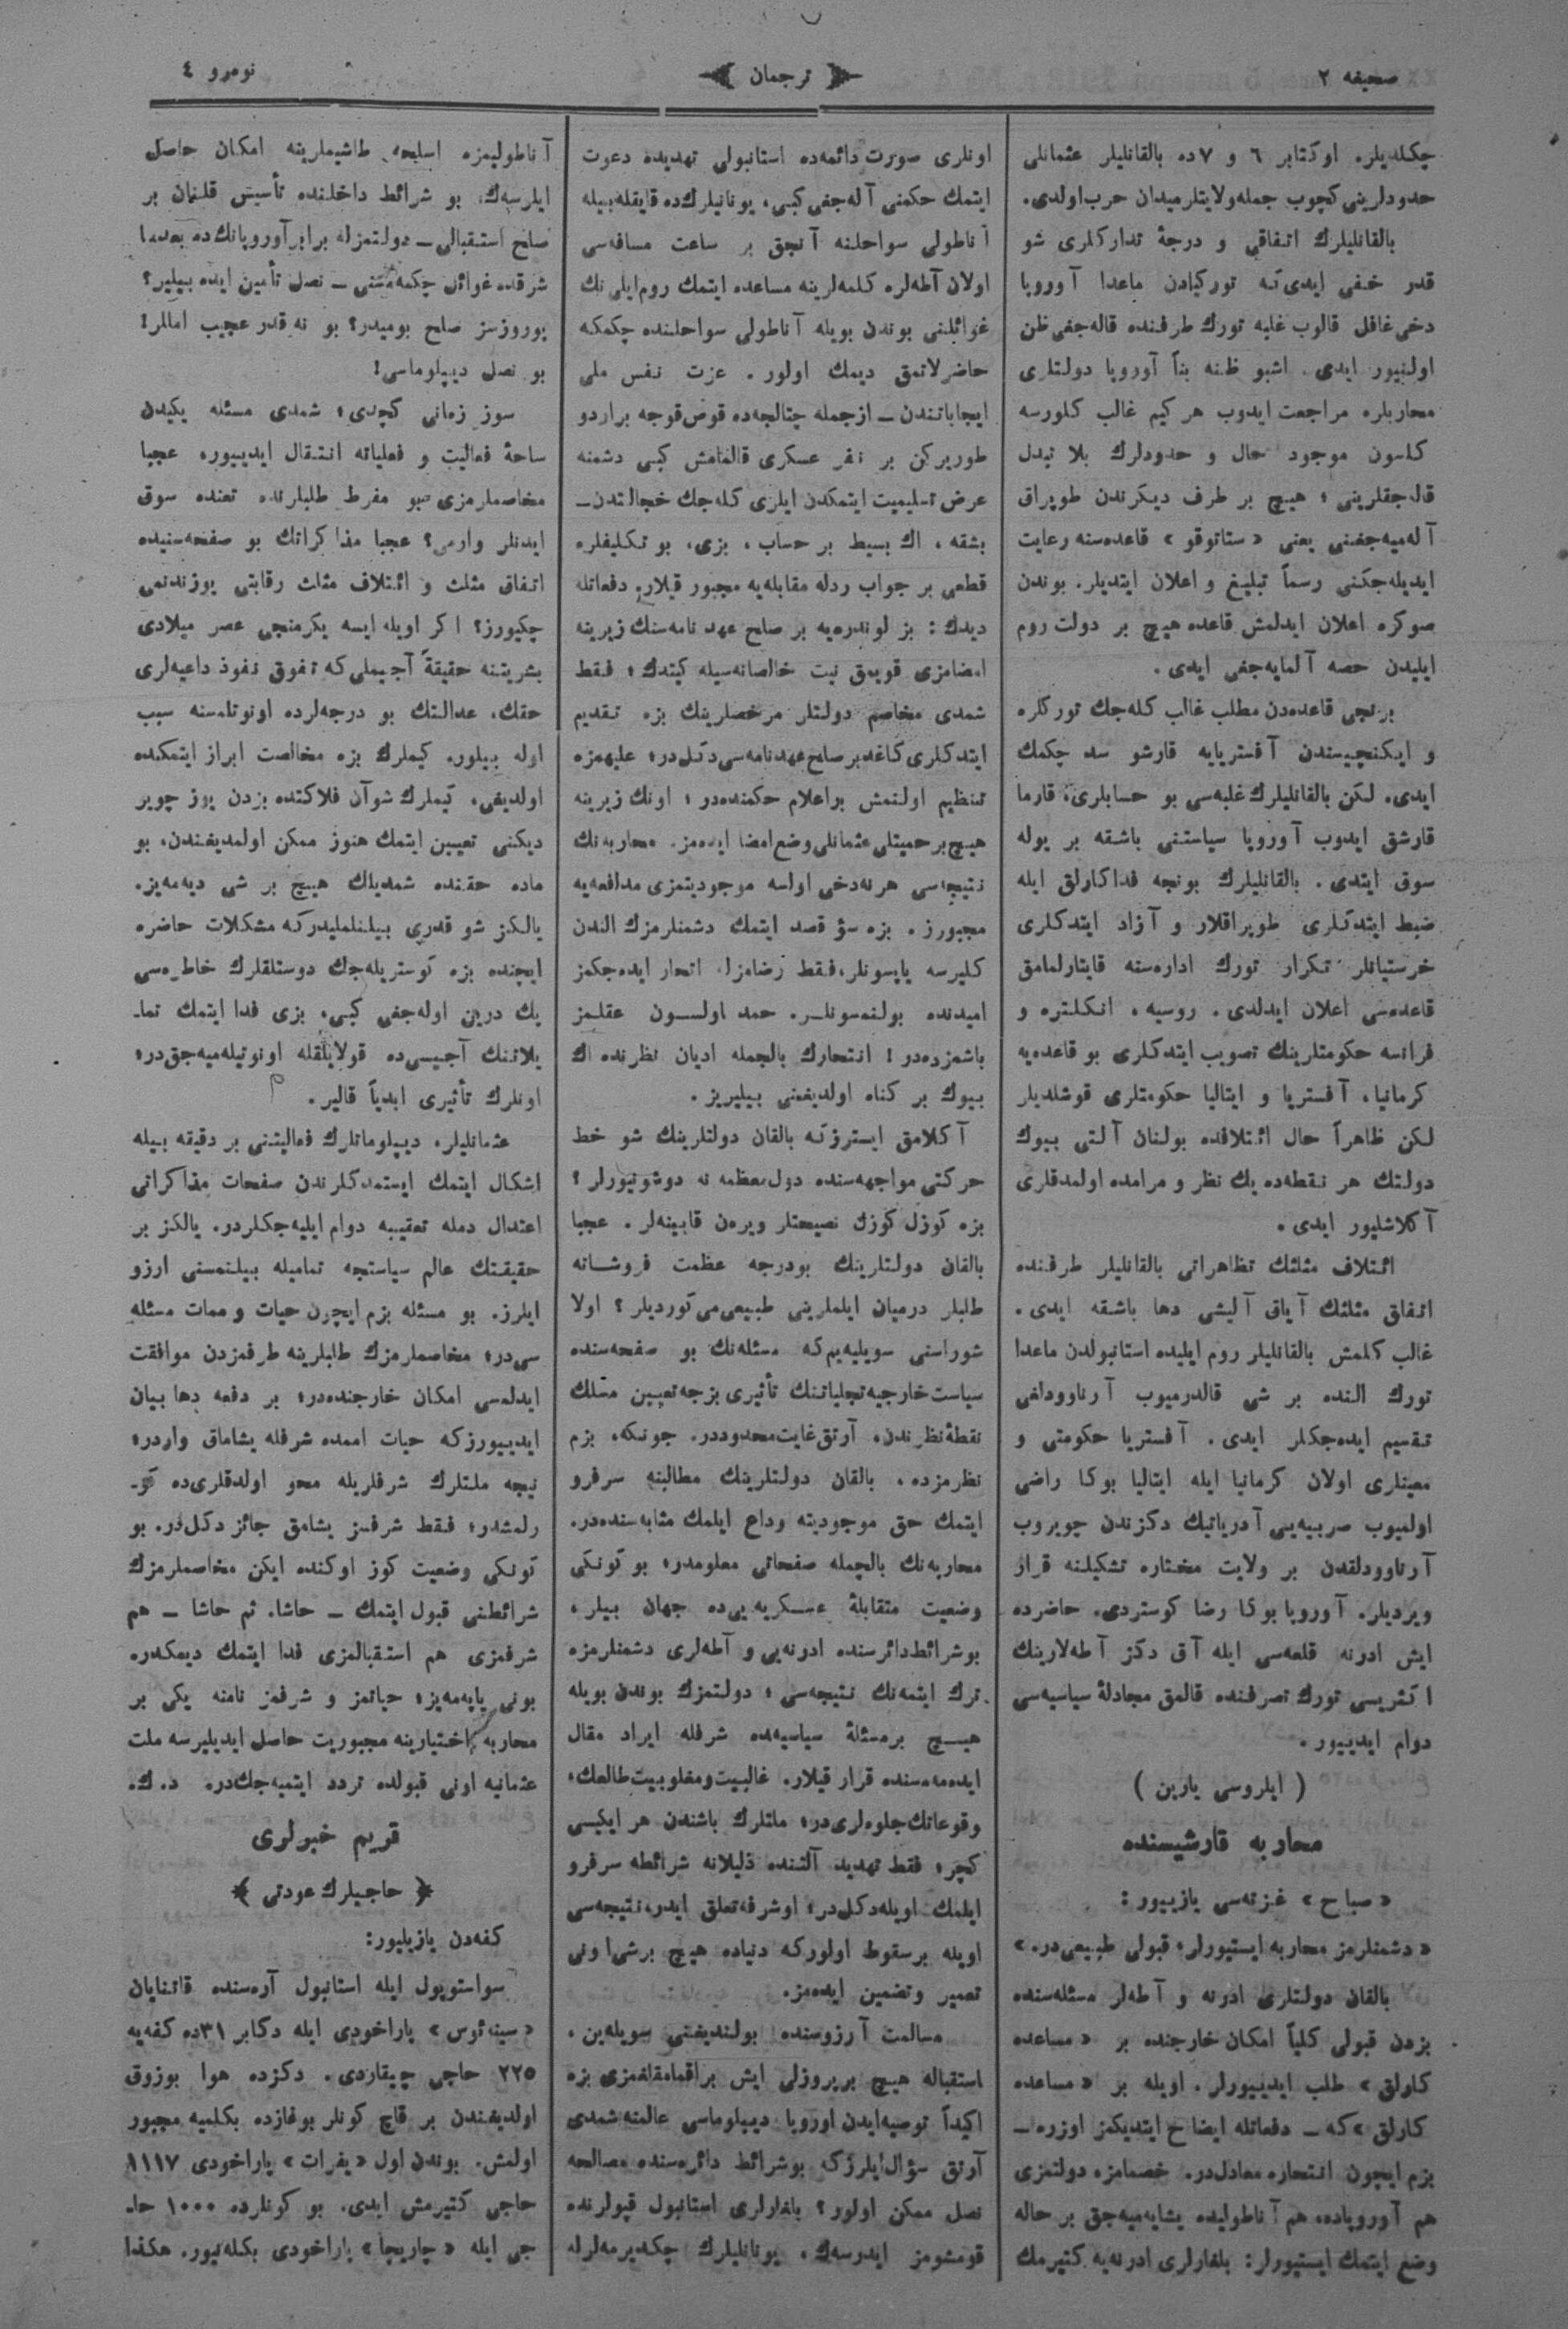 صحیفه ٢
ترجمان
نومرو ٤
چکلدیلر. اوکتابر ٦ و ٧ ده بالقانلیلر عثمانلی
حدودلرینی کچوب جمله ولایتلر میدان حرب اولدی.
بالقانلیلرك اتفاقی و درجۀ تدارکلری شو
قدر خفی ایدی که تورکیادن ماعدا آوروپا
دخی غافل قالوب غلبه تورك طرفنده قاله جغی ظن
اولنیور ایدی. اشبو ظنه بناً آوروپا دولتلری
محاربلره مراجعت ایدوب هر کیم غالب کلورسه
کلسون موجود حال و حدودلرك بلا تبدل
قاله جقلرینی ؛ هیچ بر طرف دیکرندن طوپراق
آله میه جغنی یعنی «ستاتوقو» قاعده سنه رعایت
ایدیله جکنی رسماً تبلیغ و اعلان ایتدیلر. بوندن
صوکره اعلان ایدلمش قاعده هیچ بر دولت روم
ایلیدن حصه آلمایه جغی ایدی.
برنجی قاعده دن مطلب غالب کله جك تورکلره
و ایکنجیسندن آفستریایه قارشو سد چکمك
ایدی. لکن بالقانلیلرك غلبه سی بو حسابلری، قارما
قارشق ایدوب آوروپا سیاستنی باشقه بر یوله
سوق ایتدی. بالقانلیلرك بونجه فداکارلق ایله
ضبط ایتدکلری طوپراقلار و آزاد ایتدکلری
خرستیانلر تکرار تورك اداره سنه قایتارلمامق
قاعده سی اعلان ایدلدی. روسیه، انکلتره و
فرانسه حکومتلرینك تصویب ایتدکلری بو قاعده یه
کرمانیا، آفستریا و ایتالیا حکومتلری قوشلدیلر
لکن ظاهراً حال ائتلافده بولنان آلتی بیوك
دولتك هر نقطه ده یك نظر و مرامده اولمدقلری
آکلاشلیور ایدی.
ائتلاف مثلثك تظاهراتی بالقانلیلر طرفنده
اتفاق مثلثك آیاق آلیشی دها باشقه ایدی.
غالب کلمش بالقانلیلر روم ایلیده استانبولدن ماعدا
تورك النده بر شی قالدرمیوب آرناوودلغی
تقسیم ایده جکلر ایدی. آفستریا حکومتی و
معینلری اولان کرمانیا ایله ایتالیا بوکا راضی
اولمیوب صربیه یی آدریاتیك دکزندن چویروب
آرناوودلقدن بر ولایت مختاره تشکیلنه قرار
ویردیلر. آوروپا بوکا رضا کوستردی. حاضرده
ایش ادرنه قلعه سی ایله آق دکز آطه لارینك
اکثریسی تورك تصرفنده قالمق مجادلۀ سیاسیه سی
دوام ایدییور.
( ایلروسی یارین )
محاربه قارشیسنده
«صباح» غزته سی یازییور:
«دشمنلرمز محاربه ایستیورلر، قبولی طبیعی در.»
بالقان دولتلری ادرنه و آطه لر مسئله سنده
بزدن قبولی کلیاً امکان خارجنده بر «مساعده
کارلق» طلب ایدییورلر. اویله بر «مساعده
کارلق» که ـ دفعاتله ایضاح ایتدیکمز اوزره ـ
بزم ایچون انتحاره معادلدر. خصمامزه دولتمزی
هم آوروپاده، هم آناطولیده یشایه میه جق بر حاله
وضع ایتمك ایستیورلر: بلغارلری ادرنه یه کتیرمك
اونلری صورت دائمه ده استانبولی تهدیده دعوت
ایتمك حکمنی آله جغی کبی، یونانیلرك ده قایقله بیله
آناطولی سواحلنه آنجق بر ساعت مسافه سی
اولان آطه لره کلمه لرینه مساعده ایتمك روم ایلی نك
غوائلنی بوندن بویله آناطولی سواحلنده چکمکه
حاضرلانمق دیمك اولور. عزت نفس ملی
ایجاباتندن ـ ازجمله چتالجه ده قوص قوجه بر اردو
طوریرکن بر نفر عسکری قالمامش کبی دشمنه
عرض تسلیمیت ایتمکدن ایلری کله جك خجالتدن ـ
بشقه، اك بسیط بر حساب، بزی، بو تکلیفلره
قطعی بر جواب ردله مقابله یه مجبور قیلار. دفعاتله
دیدك: بز لوندره یه بر صلح عهد نامه سنك زیرینه
امضامزی قویمق نیت خالصانه سیله کیتدك؛ فقط
شمدی مخاصم دولتلر مرخصلرینك بزه تقدیم
ایتدکلری کاغد بر صلح عهدنامه سی دکل در؛ علیهمزه
تنظیم اولنمش بر اعلام حکمنده در ؛ اونك زیرینه
هیچ بر حمیتلی عثمانلی وضع امضا ایده مز. محاربه نك
نتیجه سی هر نه دخی اولسه موجودیتمزی مدافعه یه
مجبورز. بزه سؤ قصد ایتمك دشمنلرمزك الندن
کلیرسه یاپسونلر، فقط رضامزله انتحار ایده جکمز
امیدنده بولنمسونلر. حمد اولسون عقلمز
باشمزده در ! انتحارك بالجمله ادیان نظرنده اك
بیوك بر کناه اولدیغنی بیلیریز.
آکلامق ایسترزکه بالقان دولتلرینك شو خط
حرکتی مواجهه سنده دول معظمه نه دوشونیورلر ؟
بزه کوزل کوزل نصیحتلر ویره ن قابینه لر. عجبا
بالقان دولتلرینك بودرجه عظمت فروشانه
طلبلر درمیان ایلملرینی طبیعی می کوردیلر ؟ اولا
شوراسنی سویلیه یم که مسئله نك بو صفحه سنده
سیاست خارجیه تجلیاتنك تأثیری بزجه تعیین مسلك
نقطۀ نظرندن، آرتق غایت محدوددر. چونکه، بزم
نظرمزده، بالقان دولتلرینك مطالبنه سرفرو
ایتمك حق موجودیته وداع ایلمك مثابه سنده در.
محاربه نك بالجمله صفحاتی معلومدر؛ بو کونکی
وضعیت متقابلۀ عسکریه یی ده جهان بیلر،
بو شرائط دائرسنده ادرنه یی و آطه لری دشمنلرمزه
ترك ایتمه نك نتیجه سی ؛ دولتمزك بوندن بویله
هیچ بر مسئلۀ سیاسیه ده شرفله ایراد مقال
ایده مه مسنده قرار قیلار. غالبیت و مغلوبیت طالعك،
وقوعاتك جلوه لری در؛ ملتلرك باشندن هر ایکیسی
کچر؛ فقط تهدید آلتنده ذلیلانه شرائطه سرفرو
ایلمك اویله دکل در؛ او شرفه تعلق ایدر، نتیجه سی
اویله بر سقوط اولورکه دنیاده هیچ بر شی اونی
تعمیر و تضمین ایده مز.
مسالمت آرزوسنده بولندیغنی سویله ین،
استقباله هیچ بر پروزلی ایش براقمامقلغمزی بزه
اکیداً توصیه ایدن اوروپا دیپلوماسی عالمنه شمدی
آرتق سؤال ایلرزکه بو شرائط دائره سنده مصالحه
نصل ممکن اولور؟ بلغارلری استانبول قپولرنده
قومشومز ایدرسه ك، یونانلیلرك چکدیرمه لرله
آناطولیمزه اسلحه طاشیملرینه امکان حاصل
ایلرسه ك، بو شرائط داخلنده تأسیس قلنان بر
صلح استقبالی ـ دولتمزله برابر آوروپانك ده بعدما
شرقده غوائل چکمه مسنی ـ نصل تأمین ایده بیلیر؟
پوروزسز صلح بومیدر؟ بو نه قدر عجیب امللر!
بو نصل دیپلوماسی!
سوز زمانی کچدی؛ شمدی مسئله یکیدن
ساحۀ فعالیت و فعلیاته انتقال ایدییور، عجبا
مخاصملرمزی بو مفرط طلبلرنده تعنده سوق
ایدنلر وارمی؟ عجبا مذاکراتك بو صفحه سنیده
اتفاق مثلث و ائتلاف مثلث رقابتی یوزندنمی
چکیورز؟ اکر اویله ایسه یکرمنجی عصر میلادی
بشریتنه حقیقةً آجیملی که تفوق نفوذ داعیه لری
حقك، عدالتك بو درجه لرده اونوتلمسنه سبب
اوله بیلور. کیملرك بزه مخالصت ابراز ایتمکده
اولدیغی، کیملرك شو آن فلاکتده بزدن یوز چویر
دیکنی تعیین ایتمك هنوز ممکن اولمدیغندن، بو
ماده حقنده شمدیلك هیچ بر شی دیه مه یز.
یالکز شو قدری بیلنملیدرکه مشکلات حاضره
ایچنده بزه کوستریله جك دوستلقلرك خاطره سی
پك درین اوله جغی کبی، بزی فدا ایتمك تمایـ
یلاتنك آجیسی ده قولایلقله اونوتیله میه جق در؛
اونلرك تأثیری ابدیاً قالیر.
عثمانلیلر، دیپلوماتلرك فعالیتنی بر دقیقه بیله
اشکال ایتمك ایستمدکلرندن صفحات مذاکراتی
اعتدال دمله تعقیبه دوام ایلیه جکلردر. یالکز بر
حقیقتك عالم سیاستجه تمامیله بیلنمسنی ارزو
ایلرز. بو مسئله بزم ایچون حیات و ممات مسئله
سی در؛ مخاصملرمزك طلبلرینه طرفمزدن موافقت
ایدلمسی امکان خارجنده در؛ بر دفعه دها بیان
ایدییورزکه حیات اممده شرفله یشاماق واردر؛
نیجه ملتلرك شرفلریله محو اولدقلری ده کو-
رلمشدر؛ فقط شرفسز یشامق جائز دکل در. بو
کونکی وضعیت کوز اوکنده ایکن مخاصملرمزك
شرائطنی قبول ایتمك ـ حاشا. ثم حاشا ـ هم
شرفمزی هم استقبالمزی فدا ایتمك دیمکدر.
بونی یاپه مه یز؛ حیاتمز و شرفمز نامنه یکی بر
محاربه اختیارینه مجبوریت حاصل ایدیلیرسه ملت
عثمانیه اونی قبولده تردد ایتمیه جك در. د. ك.
قریم خبرلری
حاجیلرك عودتی
کفه دن یازیلیور:
سواستوپول ایله استانبول آره سنده قاتنایان
«سینه ئوس» پاراخودی ایله دکابر ٣١ ده کفه یه
٢٢٥ حاجی چیقاردی. دکزده هوا بوزوق
اولدیغندن بر قاچ کونلر بوغازده بکلمیه مجبور
اولمش. بوندن اول «یفرات» پاراخودی ١١١٧
حاجی کتیرمش ایدی. بو کونلرده ١٠٠٠ حا-
جی ایله «چاریچا» پاراخودی بکله نیور. هکذا